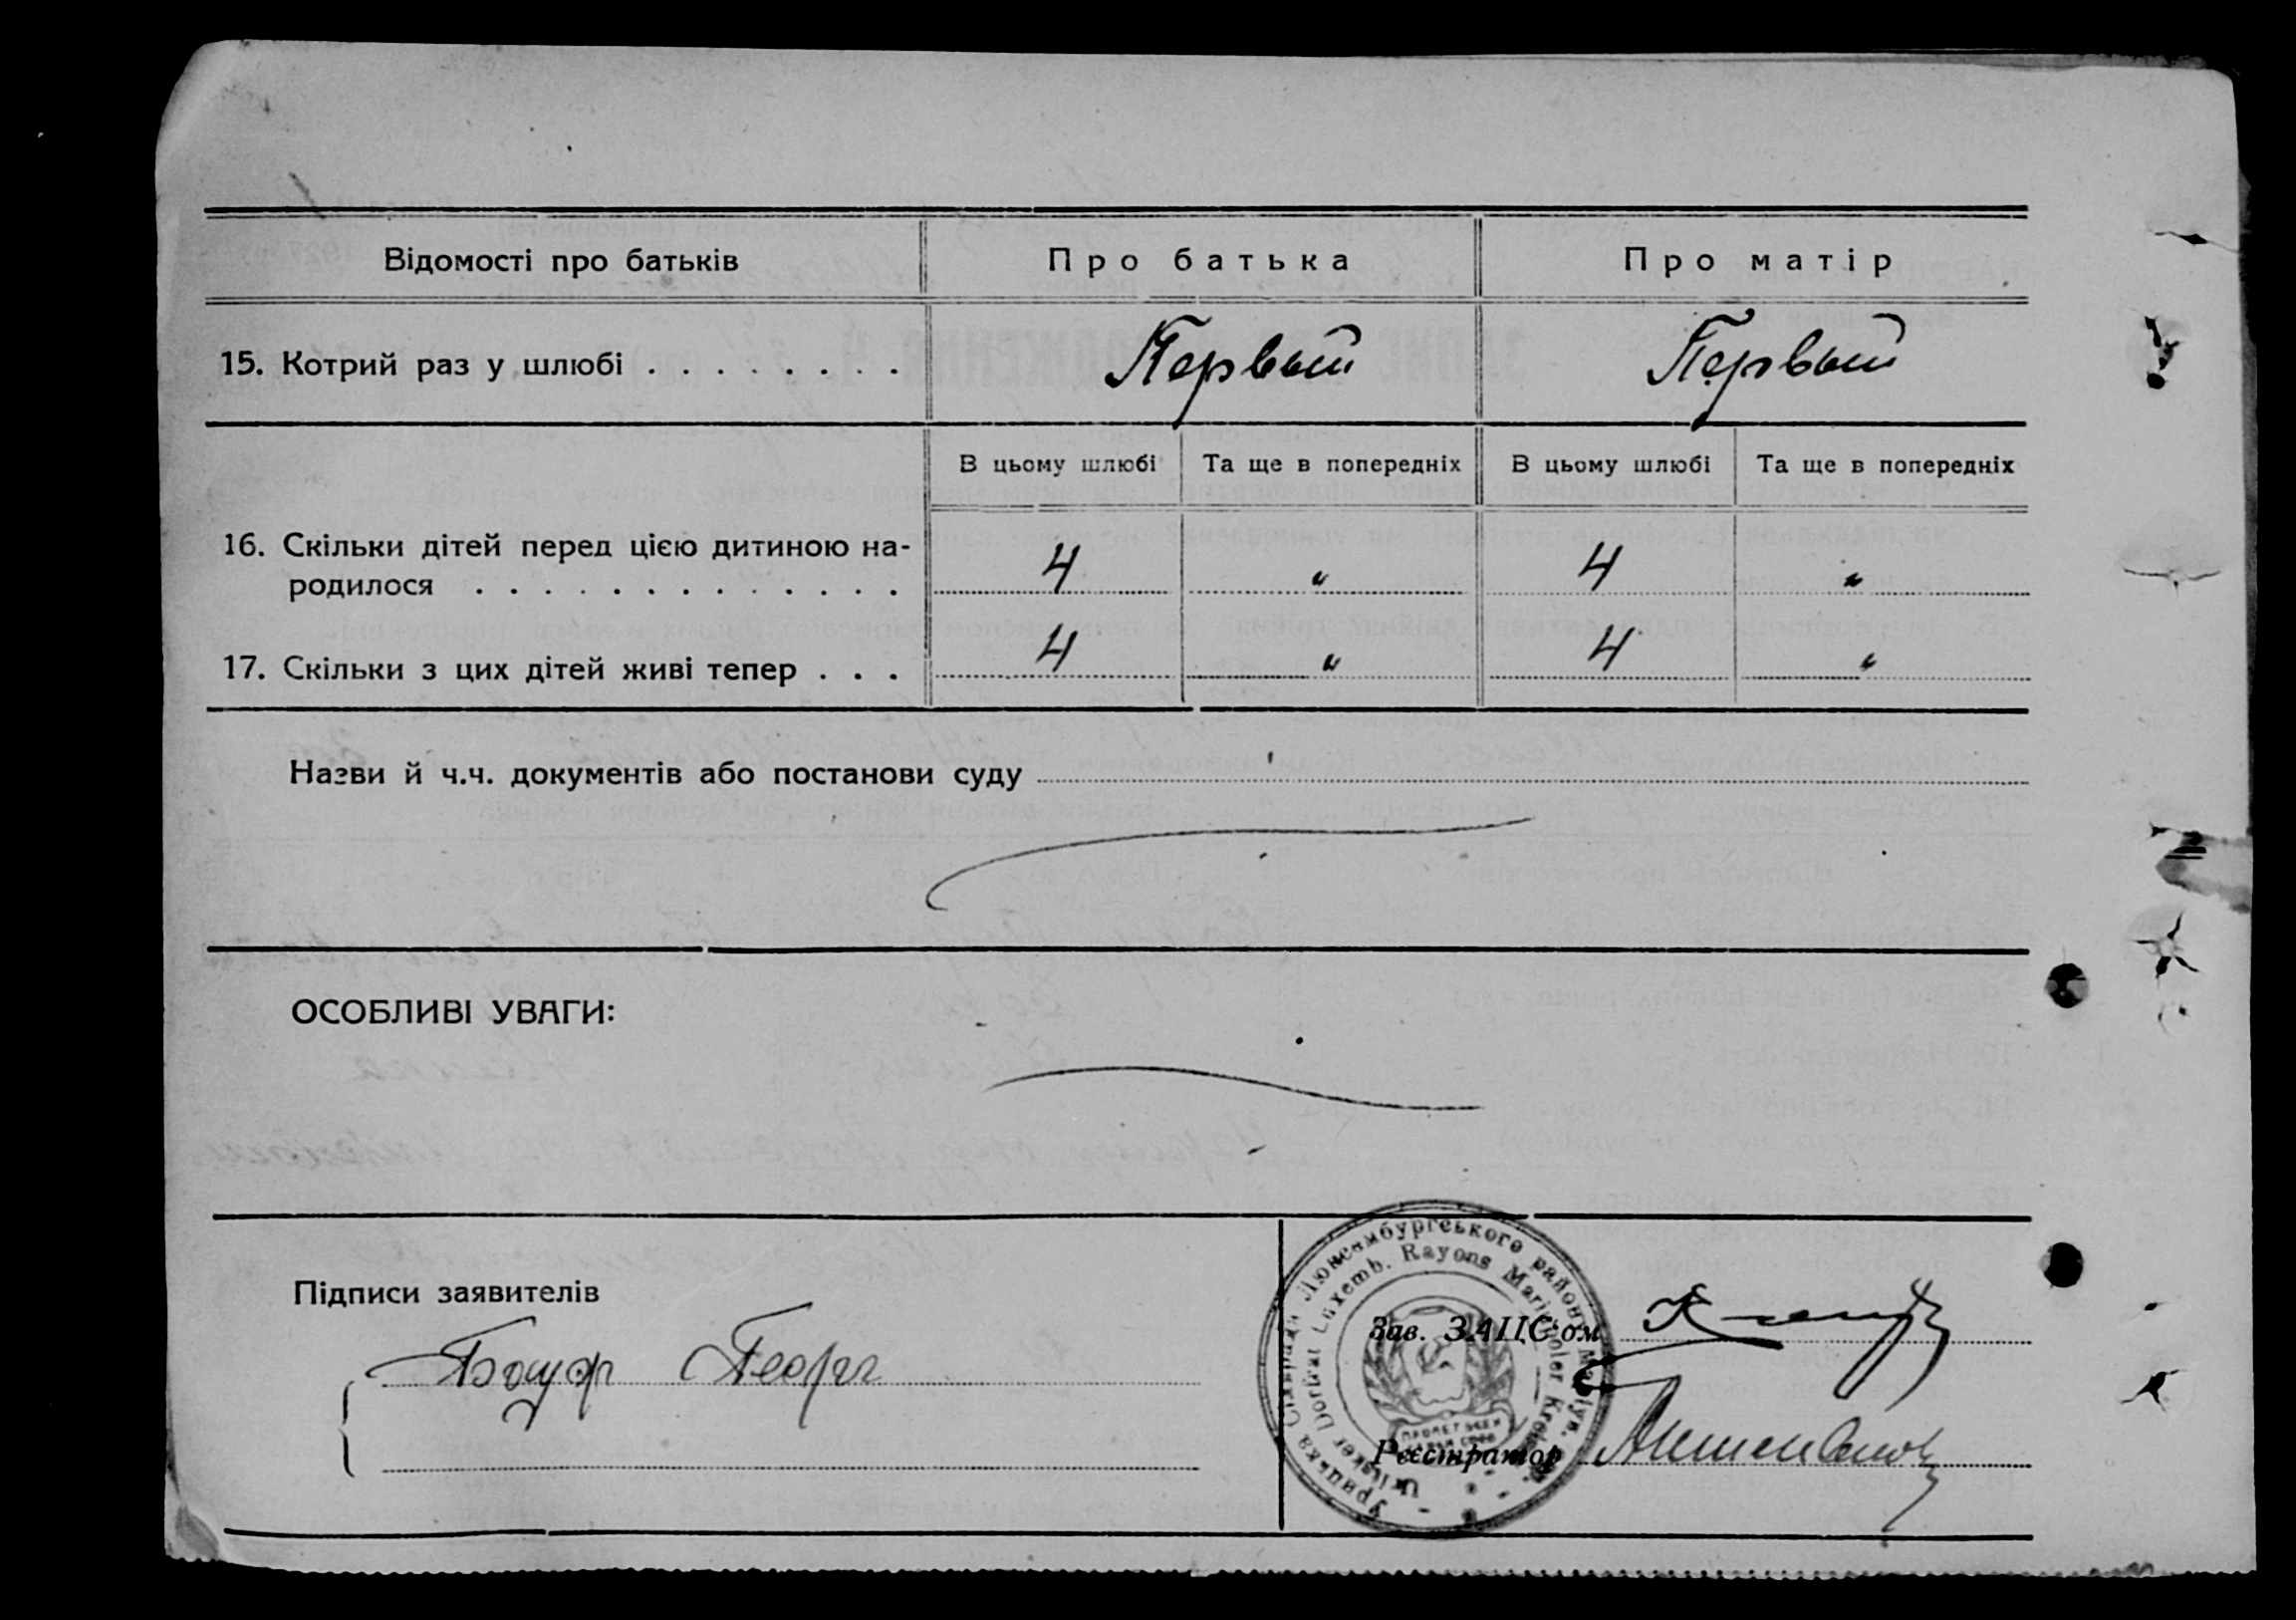 Відомості про батьків
Про батька
Про матір
15. Котрий раз у шлюбі . . . . . . . .
Первый
Первый
В цьому шлюбі
Та ще в попередніх
В цьому шлюбі
Та ще в попередніх
16. Скільки дітей перед цією дитиною на-
родилося . . . . . . . . . . . . .
4 " 4 "
17. Скільки з цих дітей живі тепер . . .
4 " 4 "
Назви й ч.ч. документів або постанови суду
ОСОБЛИВІ УВАГИ:
Підписи заявителів
Георг
Люксембургського району
Luxemb. Rayons Mariupoler
Зав. ЗАЦС'ом
Реєстратор